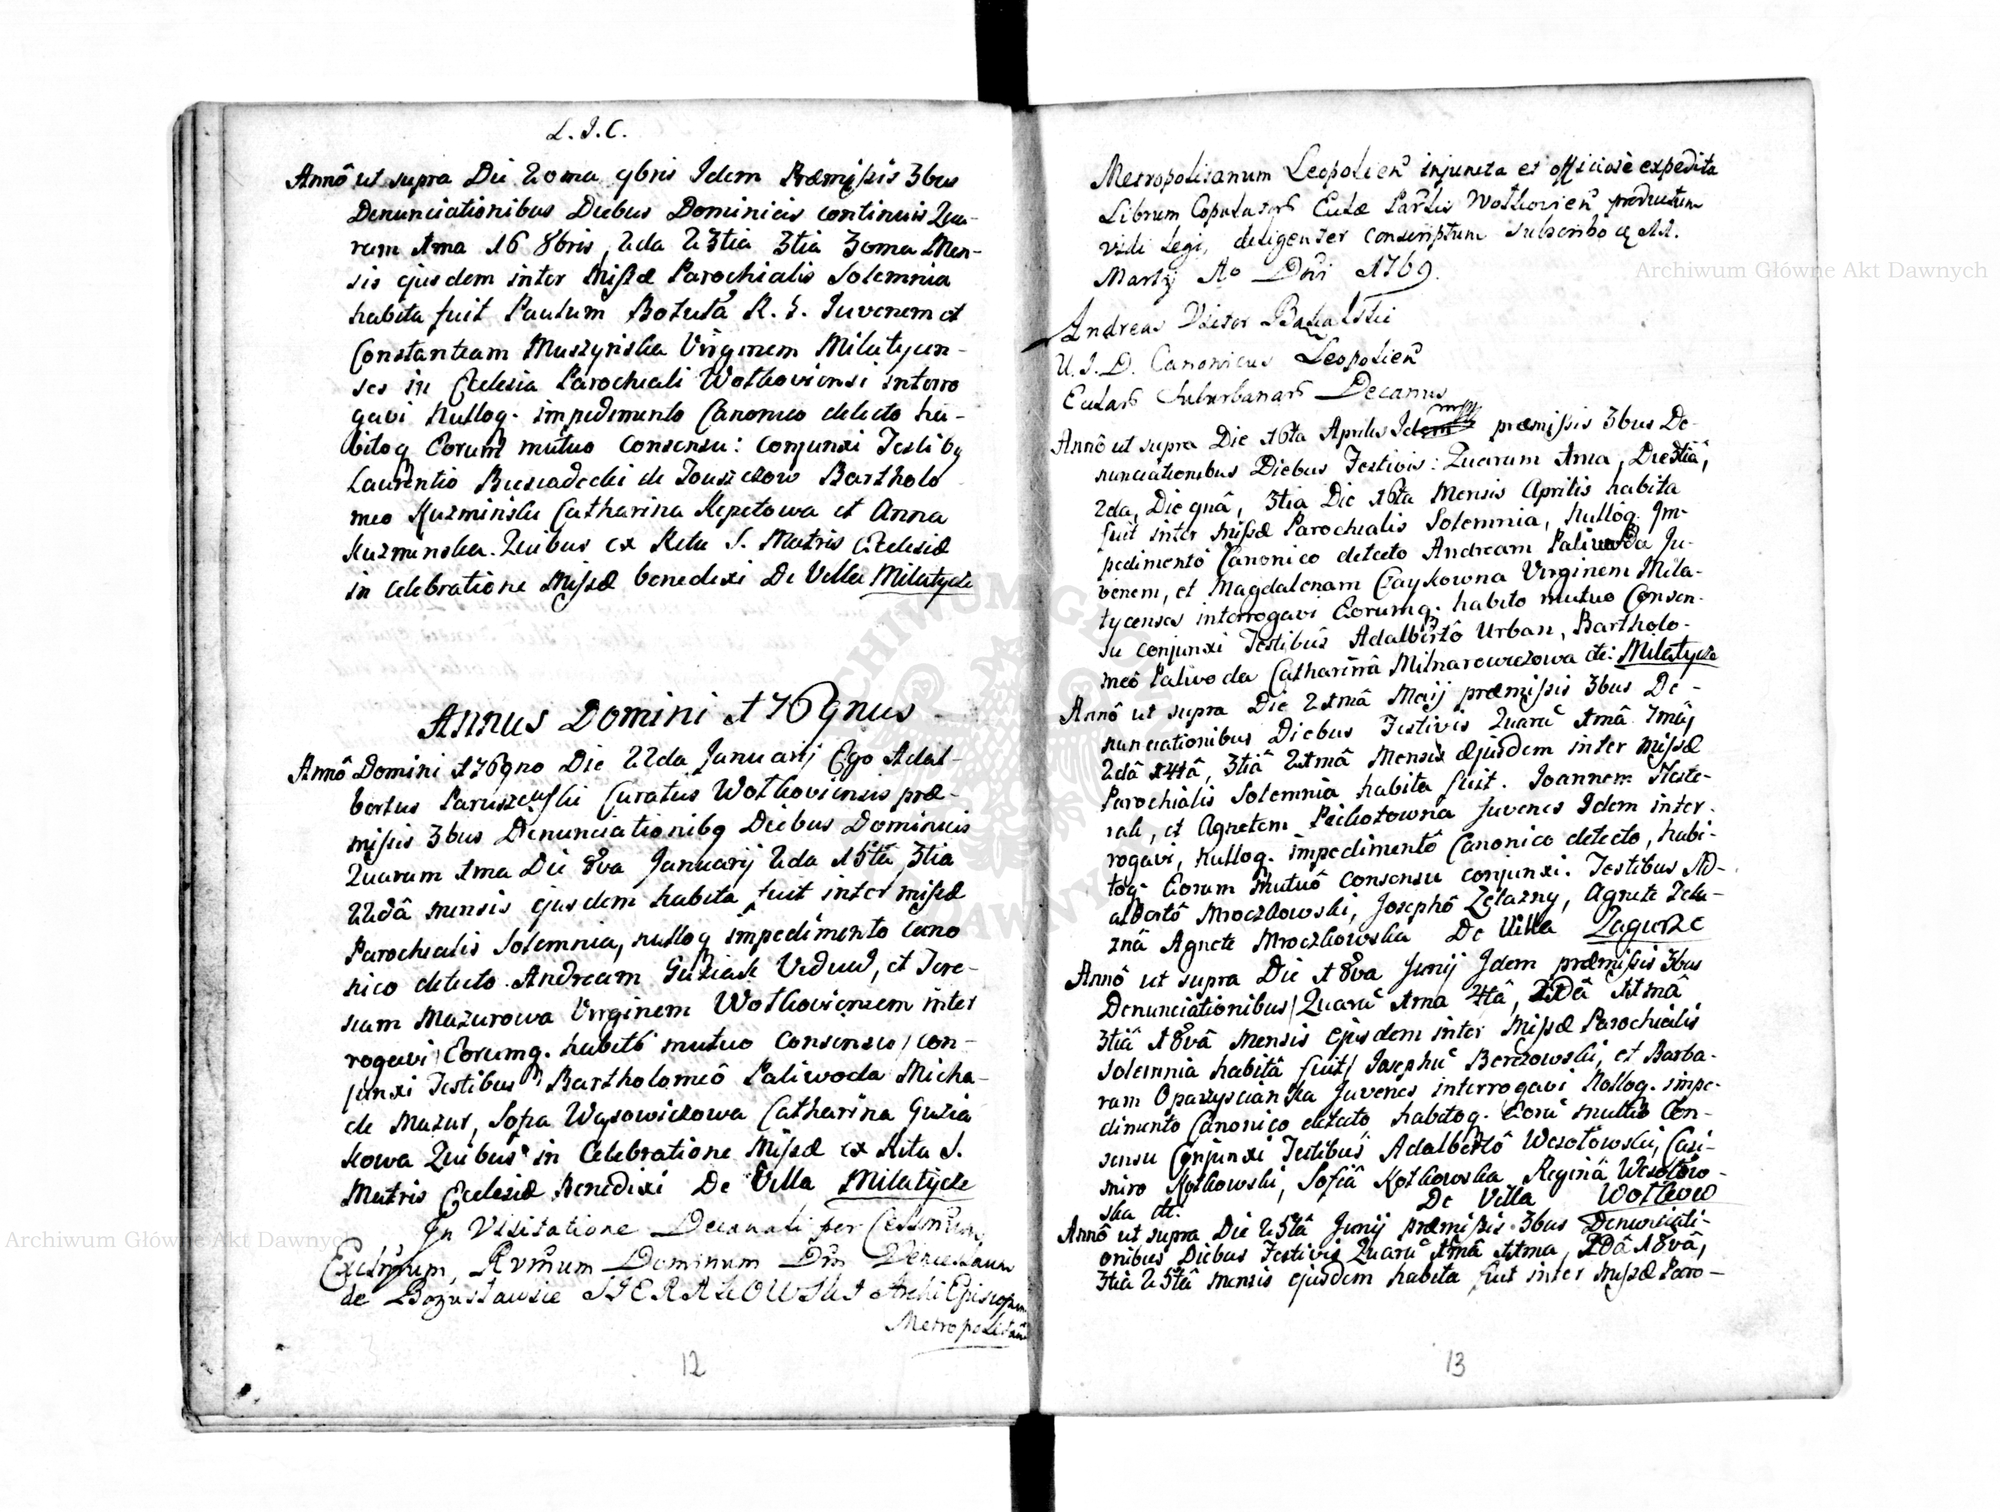 L. J. C.
Annô ut supra Die 20ma 9bris Idem Præmißis 3bus
Denunciationibus Diebus Dominicis continuis Qua-
rum 1ma 16 8bris, 2da 23tia 3tia 30ma Men-
sis ejusdem inter Mißæ Parochialis Solemnia
habita fuit Paulum Botuta R. S. Juvenem et
Constantiam Muszyńska Virginem Milatycen-
ses in Ecclesia Parochiali Wołkoviensi interro
gavi Nulloq. impedimento Canonico detecto ha-
bitoq Eorum mutuo consensu: conjunxi Testibq
Laurentio Biesiadecki de Touszczow Bartholo
meo Kuzminski Catharina Repetowa et Anna
Kuzminska. Quibus ex Ritu S. Matris Ecclesiæ
in celebratione Mißæ benedixi De Villa Milatycze
Annus Domini 1769nus
Annô Domini 1769no Die 22da Januarij Ego Adal-
bertus Paruszewski Curatus Wołkoviensis præ-
mißis 3bus Denunciationibq Diebus Dominicis
Quarum 1ma Die 8va Januarij 2da 15tâ 3tia
22dâ mensis ejusdem habita fuit inter mißæ
Parochialis Solemnia, nulloq impedimento cano
nico detecto Andream Guziak Viduũ, et Tere-
siam Mazurowa Virginem Wołkoviensem inter
rogavi / Eorumq. habitô mutuo Consensu / con-
junxi Testibus Bartholomeô Paliwoda Micha-
ele Mazur, Sofia Wąsowiczowa Catharina Guzia
kowa Quibus in Celebratione Mißæ ex Ritu S.
Matris Ecclesiæ Benedixi De Villa Milatycze
In Visitatione Decanali per Celsmum,
Exclmum, Rvmum Dominum Dm Venceslaum
de Bogusławice SIERAKOWSKI Archi Episcopum
Metropolitanũ
12
Metropolitanum Leopolien injuncta et officiosè expedita
Librum Copulator Eclæ Parlis Wołkovien productum
vidi legi, deligenter conscriptum subscribo 11.
Martij Ao Dni 1769.
Andreas Victor
U. J. D. Canonicus Leopolien
Eclar Suburbanar Decanus
mp
Annô ut supra Die 16ta Aprilis Idem præmißis 3bus De-
nunciationibus Diebus Festivis: Quarum 1ma, Die 3tiâ,
2da, Die 9nâ, 3tia Die 16ta Mensis Aprilis habita
fuit inter mißæ Parochialis Solemnia, Nullôq. Im-
pedimentô Canonico detecto Andream Paliwoda Ju-
venem, et Magdalenam Czaykowna Virginem Mila-
tycenses interrogavi Eorumq. habito mutuo Consen-
su conjunxi Testibus Adalbertô Urban, Bartholo-
meô Paliwoda Catharinâ Milnarowiczowa de: Milatycze
Annô ut supra Die 21mâ Maij præmißis 3bus De-
nunciationibus Diebus Festivis Quarũ 1mâ 7mâ
2dâ 14tâ, 3tiâ 21mâ Mensis ejusdem inter mißæ
Parochialis Solemnia habita fuit. Joannem Neste-
rak, et Agnetem Piechotowna Juvenes Idem inter-
rogavi, Nulloq. impedimentô Canonico detecto, habi-
toq. Eorum Mutuô consensu conjunxi. Testibus Ad-
albertô Mroczkowski, Josephô Zelazny, Agnete Zela-
znâ Agnete Mroczkowska De Villa Zagurze
Annô ut supra Die 18va Junij Idem præmißis 3bus
Denunciationibus / Quarũ 1ma 4tâ, 2dâ 11mâ
3tiâ 18vâ Mensis Ejusdem inter Mißæ Parochialis
Solemnia habitâ fuit / Josephũ Berezowski, et Barba-
ram Oparzyscianka Juvenes interrogavi Nulloq. impe-
dimento Canonico detecto, habitoq. Eorũ mutuo Con-
sensu Conjunxi Testibus Adalbertô Wesołowski, Casi-
miro Kotkowski, Sofiâ Kotkowska Reginâ Wesołow-
ska etc. De Villa Wołkow
Annô ut supra Die 25tâ Junij præmißis 3bus Denunciati-
onibus Diebus Festivis Quarũ 1mâ 11ma, 2dâ 18vâ,
3tia 25tâ mensis ejusdem habita fuit inter Mißæ Paro-
13
Archiwum Główne Akt Dawnych
Archiwum Główne Akt Dawnych
ARCHIWUM GŁÓWNE AKT DAWNYCH